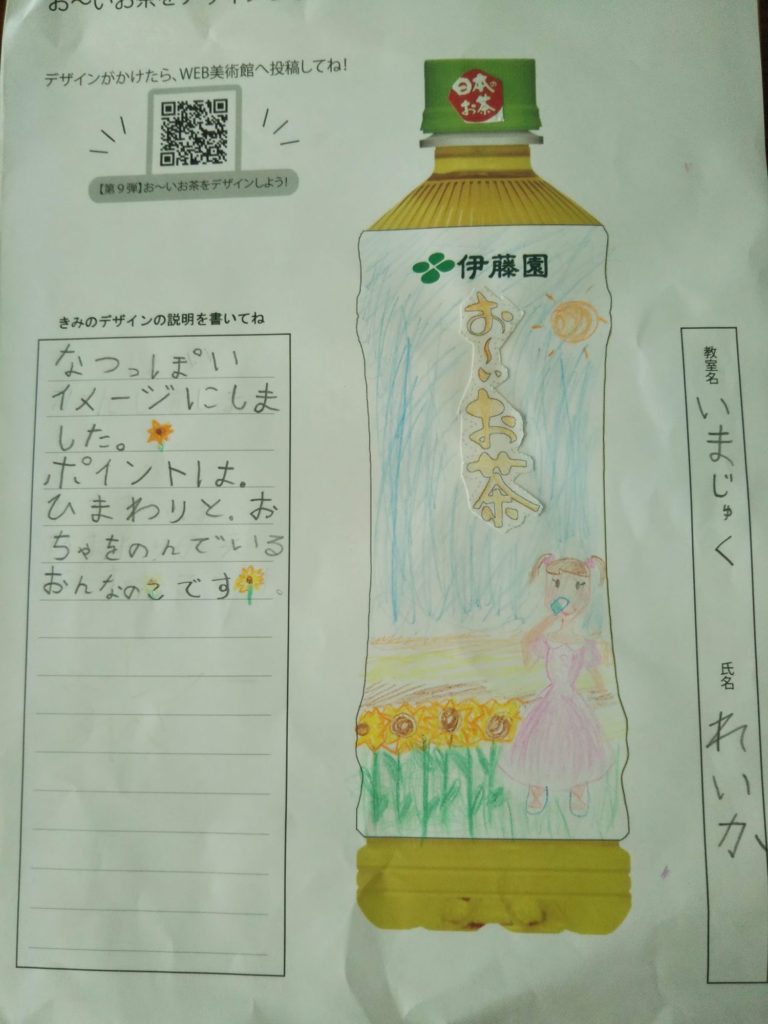 お〜いお茶をデザイン
デザインがかけたら、WEB美術館へ投稿してね!
【第9弾】お〜いお茶をデザインしよう!
日本の
お茶
伊藤園
お〜いお茶
きみのデザインの説明を書いてね
なつっぽい
イメージにしま
した。
ポイントは。
ひまわりと、お
ちゃをのんでいる
おんなのこです。
教室名
いまじゅく
氏名
れいか